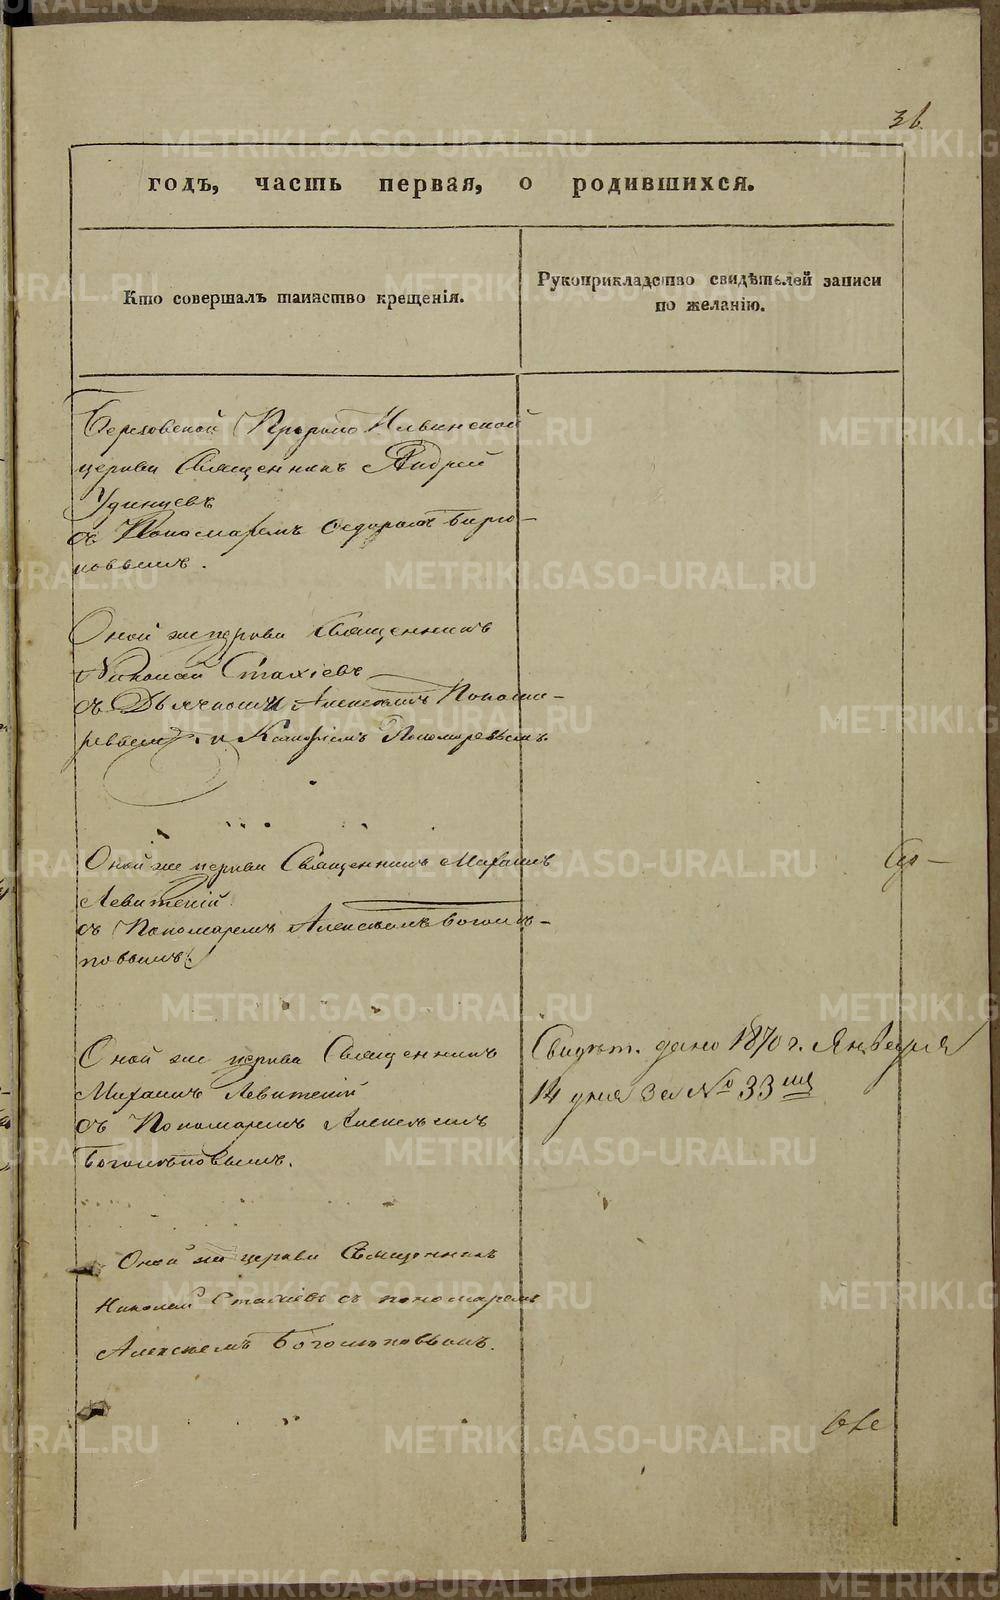 36.
годъ, часть первая, о родившихся.
Кто совершалъ таинство крещенія.
Рукоприкладство свидѣтелей записи
по желанію.
Пророко Ильинской
церкви Священникъ Андрей
Удинцевъ
съ Пономаремъ Федоромъ Бирю-
ковымъ.
Оной же церкви Священникъ
Николай Стахіевъ
съ Дьячкомъ Понома-
ревымъ и Пономаревымъ.
Оной же церкви Священникъ Михаилъ
Левитскій
съ Пономаремъ Алексѣемъ Боголѣ-
повымъ.
Оной же церкви Священникъ
Михаилъ Левитскій
съ Пономаремъ Алексѣемъ
Боголѣповымъ.
Свидѣт. дано 1870 г. Января
14 дня за № 33
Оной же церкви Священникъ
Николай Стахіевъ съ пономаремъ
Алексѣемъ Боголюповымъ.
METRIKI.GASO-URAL.RU